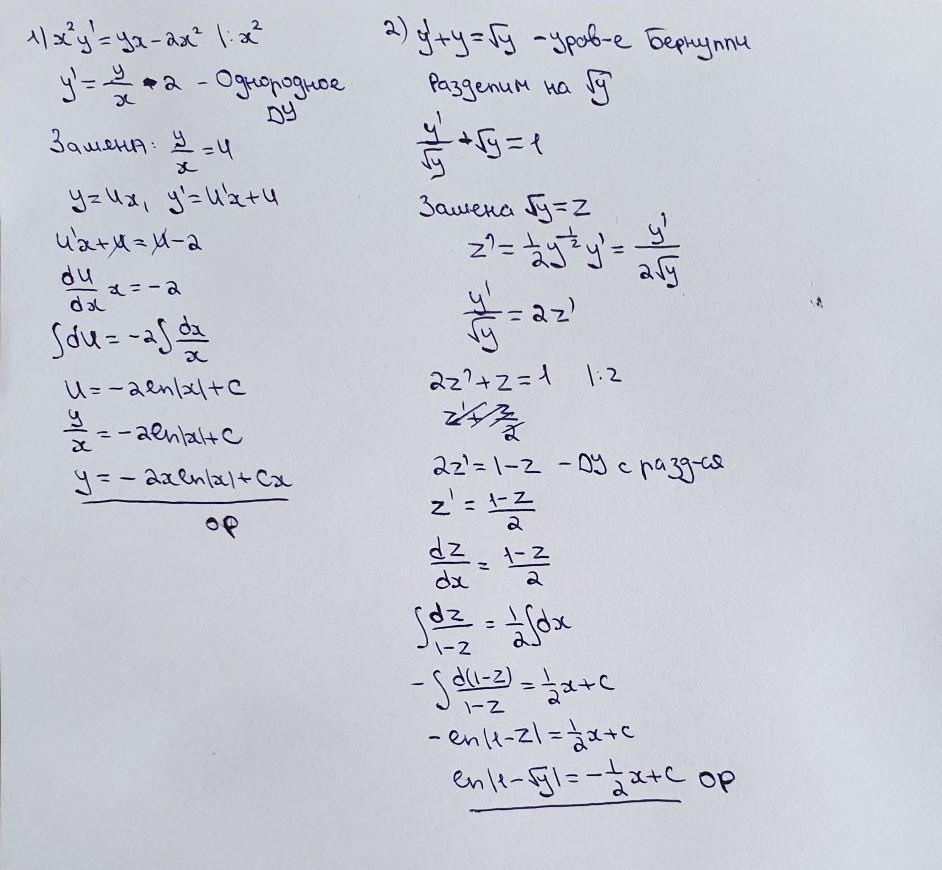 1) x²y' = yx - 2x² |:x²
y' = y/x - 2 - Однородное
ДУ
Замена: y/x = u
y = ux, y' = u'x + u
u'x + u = u - 2
du/dx x = -2
∫du = -2∫dx/x
u = -2ln|x| + C
y/x = -2ln|x| + C
y = -2xln|x| + Cx
ОР
2) y' + y = √y - урав-е Бернулли
Разделим на √y
y'/√y + √y = 1
Замена √y = z
z' = 1/2 y^(-1/2) y' = y'/(2√y)
y'/√y = 2z'
2z' + z = 1 |:2
z' + z/2
2z' = 1 - z - ДУ с разд-ся
z' = (1-z)/2
dz/dx = (1-z)/2
∫dz/(1-z) = 1/2∫dx
-∫d(1-z)/(1-z) = 1/2x + C
-ln|1-z| = 1/2x + C
ln|1-√y| = -1/2x + C ОР